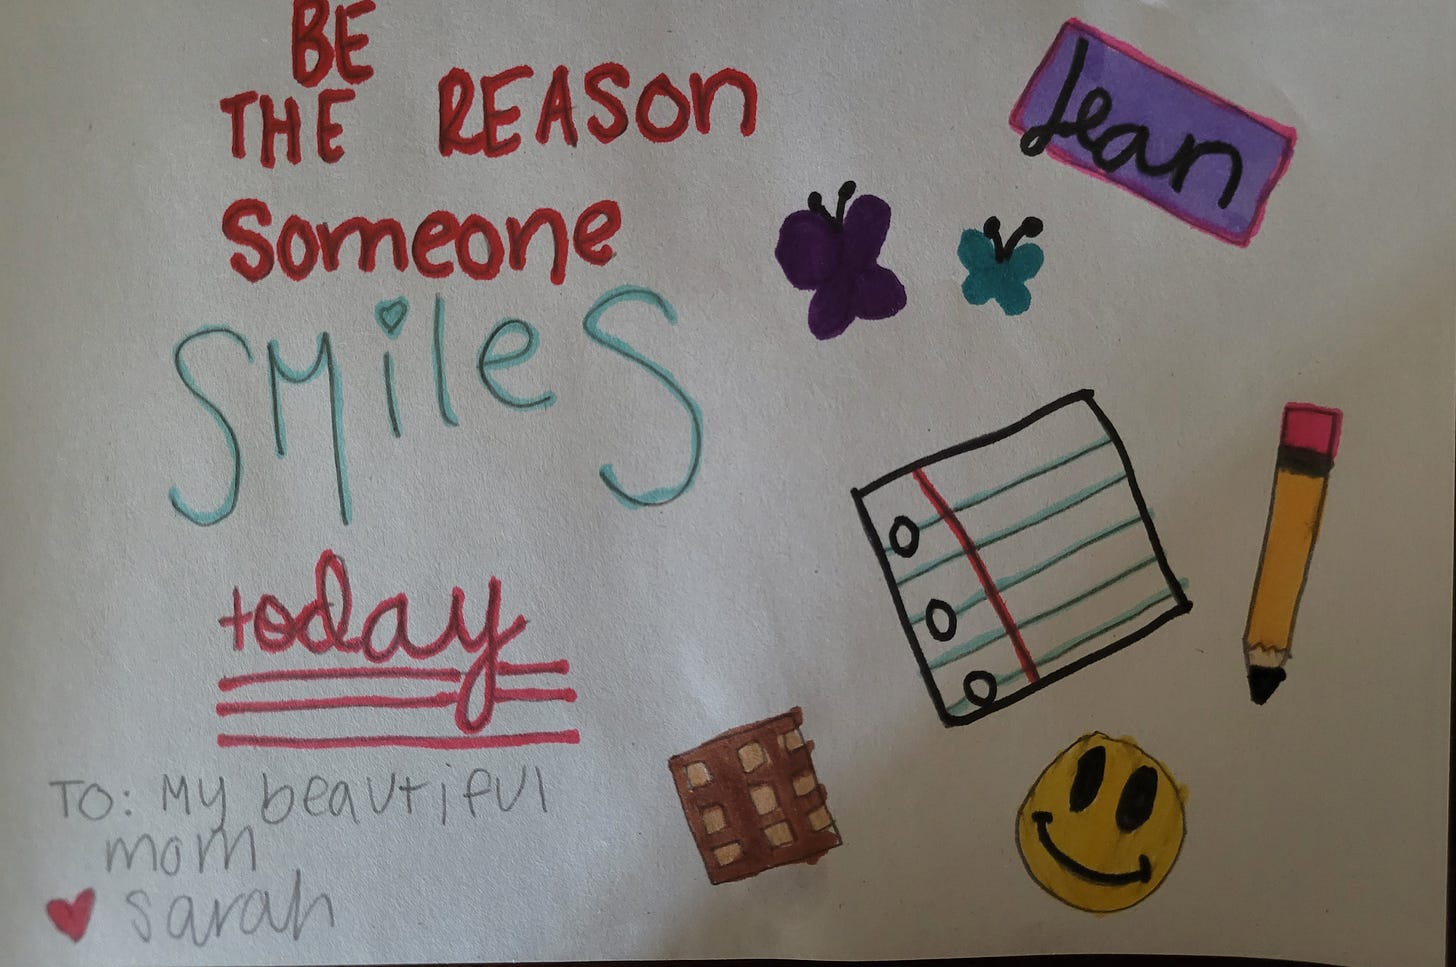 BE
THE REASon
Someone
SMileS
today
TO: My beautiful
mom
sarah
Jean